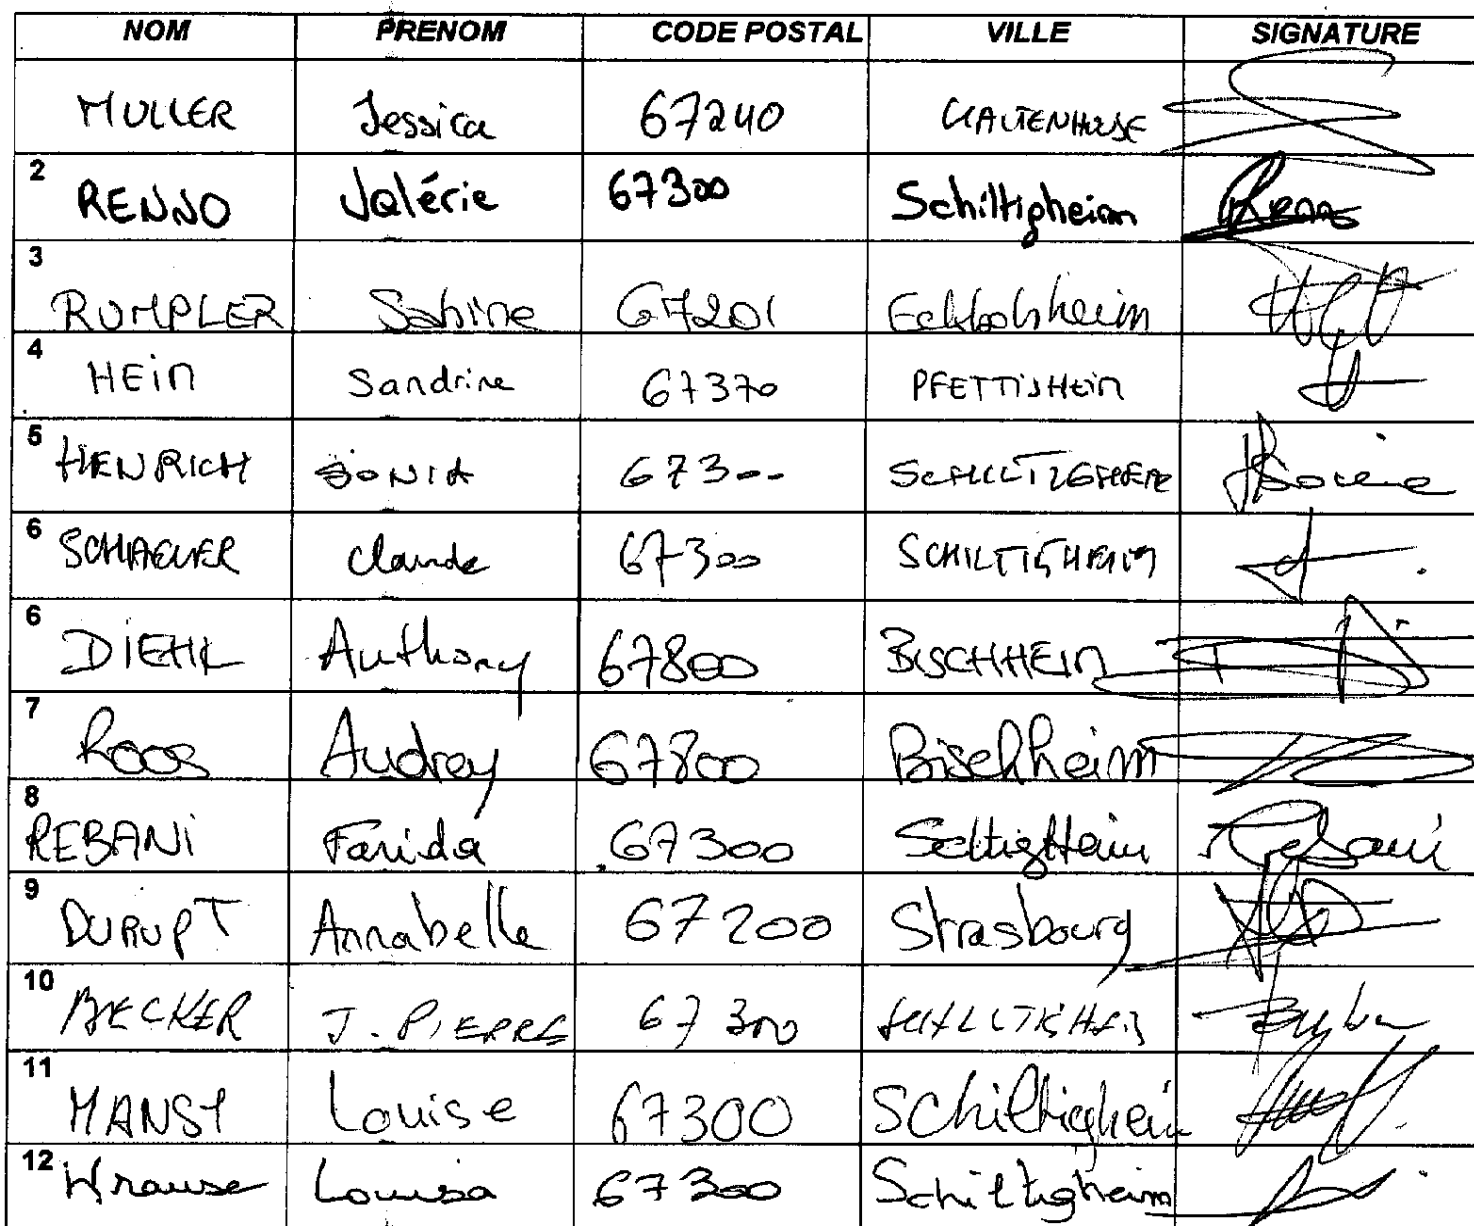 NOM PRENOM CODE POSTAL VILLE SIGNATURE
MULLER Jessica 67240 KALTENHOUSE
2 RENNO Valérie 67300 Schiltigheim Renno
3 RUMPLER Sabine 67201 Eckbolsheim
4 HEIN Sandrine 67370 PFETTISHEIM
5 HENRICH SONIA 67300
6 Claude 67300 SCHILTIGHEIM
6 DIEHL Anthony 67800 BISCHHEIM
7 Roos Audrey 67800 Bischheim
8 REBANI Farida 67300 Rebani
9 DURUPT Annabelle 67200 Strasbourg
10 BECKER J. PIERRE 67300
11 MANSY Louise 67300 Schiltigheim
12 Krause Louisa 67300 Schiltigheim